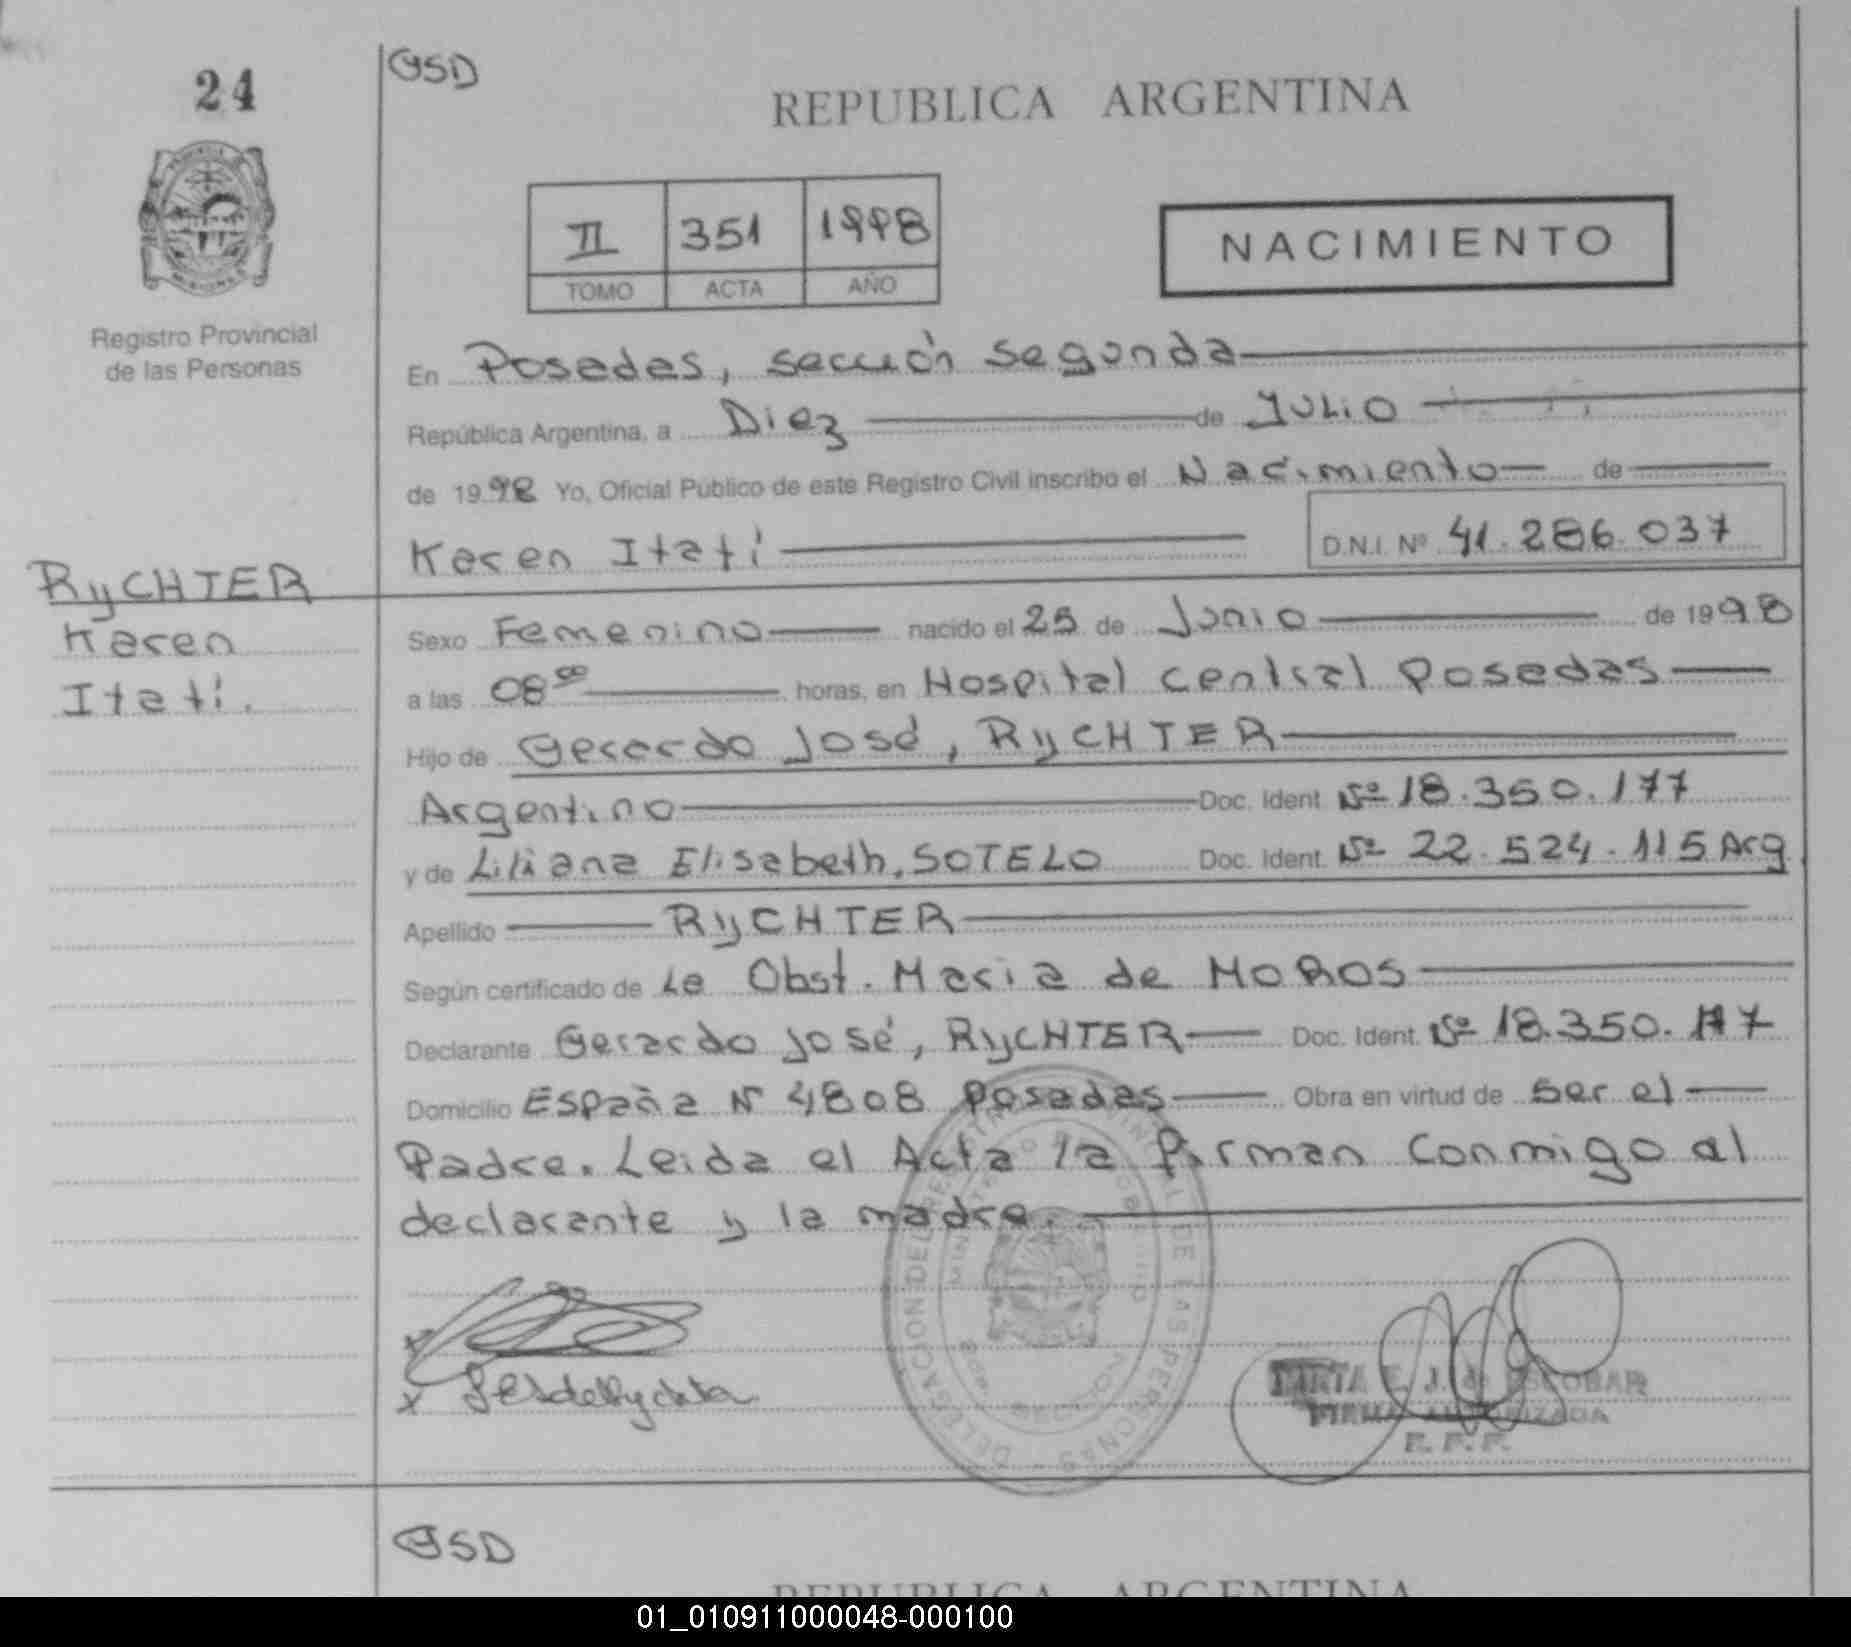 24
GSD
REPUBLICA ARGENTINA
II 351 1998
TOMO ACTA AÑO
NACIMIENTO
Registro Provincial
de las Personas
En Posadas, sección segunda
República Argentina, a Diez de Julio
de 1998 Yo, Oficial Público de este Registro Civil inscribo el Nacimiento de
Karen Itatí D.N.I. Nº 41.286.037
RyCHTER
Karen
Itatí.
Sexo Femenino nacido el 25 de Junio de 1998
a las 08⁰⁰ horas, en Hospital central Posadas
Hijo de Gerardo José, RyCHTER
Argentino Doc. Ident. Nº 18.350.177
y de Liliana Elisabeth, SOTELO Doc. Ident. Nº 22.524.115 Arg.
Apellido RyCHTER
Según certificado de La Obst. Maria de MOROS
Declarante Gerardo José, RyCHTER Doc. Ident. Nº 18.350.177
Domicilio España Nº 4808 Posadas Obra en virtud de ser el
Padre. Leida el Acta la firman conmigo al
declarante y la madre.
DELEGACION DEL REGISTRO PROVINCIAL DE LAS PERSONAS
J. de ESCOBAR
FIRMA AUTORIZADA
GSD
REPUBLICA ARGENTINA
01_010911000048-000100